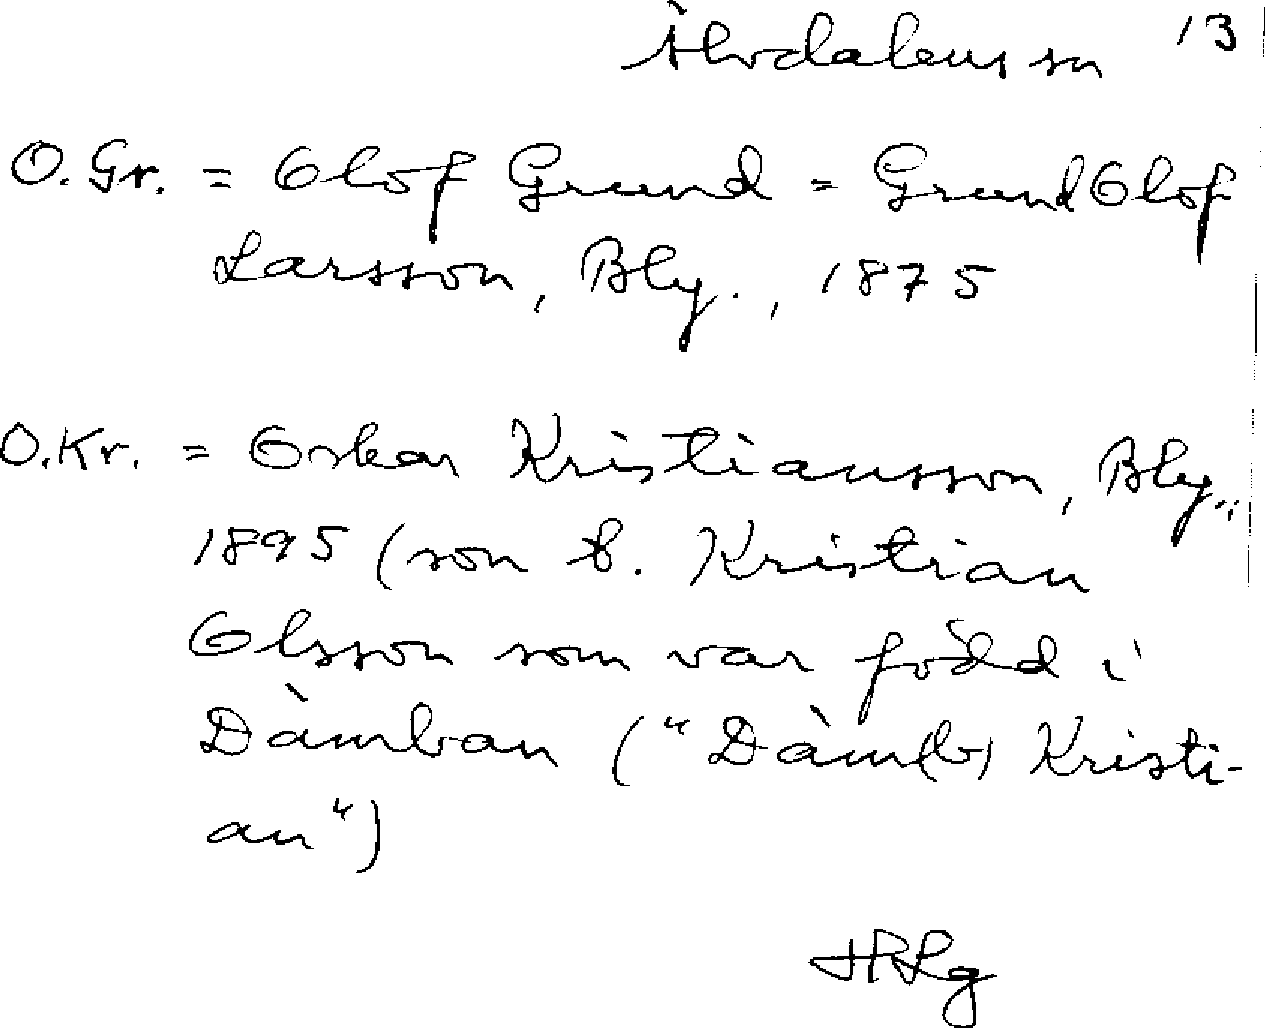 Älvdalens sn 13
O.Gr. = Olof Grund = Grund Olof
Larsson, Bly., 1875
O.Kr. = Oskar Kristiansson, Bly.,
1895 (son t. Kristian
Olsson som var född i
Dåmban ("Dåm(b) Kristi-
an")
HRLg